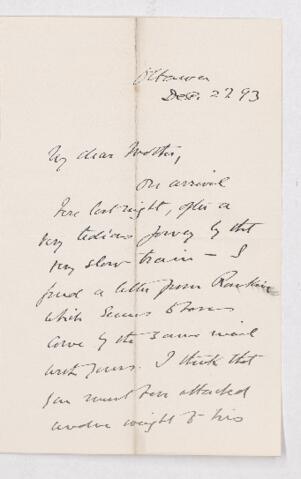 Ottawa
Dec. 27 93
My dear Mother,
On arrival
here last night, after a
very tedious journey by that
very slow train – I
found a letter from Rankin
which seems to have
come by the same mail
with yours. I think that
you must have attached
undue weight to his